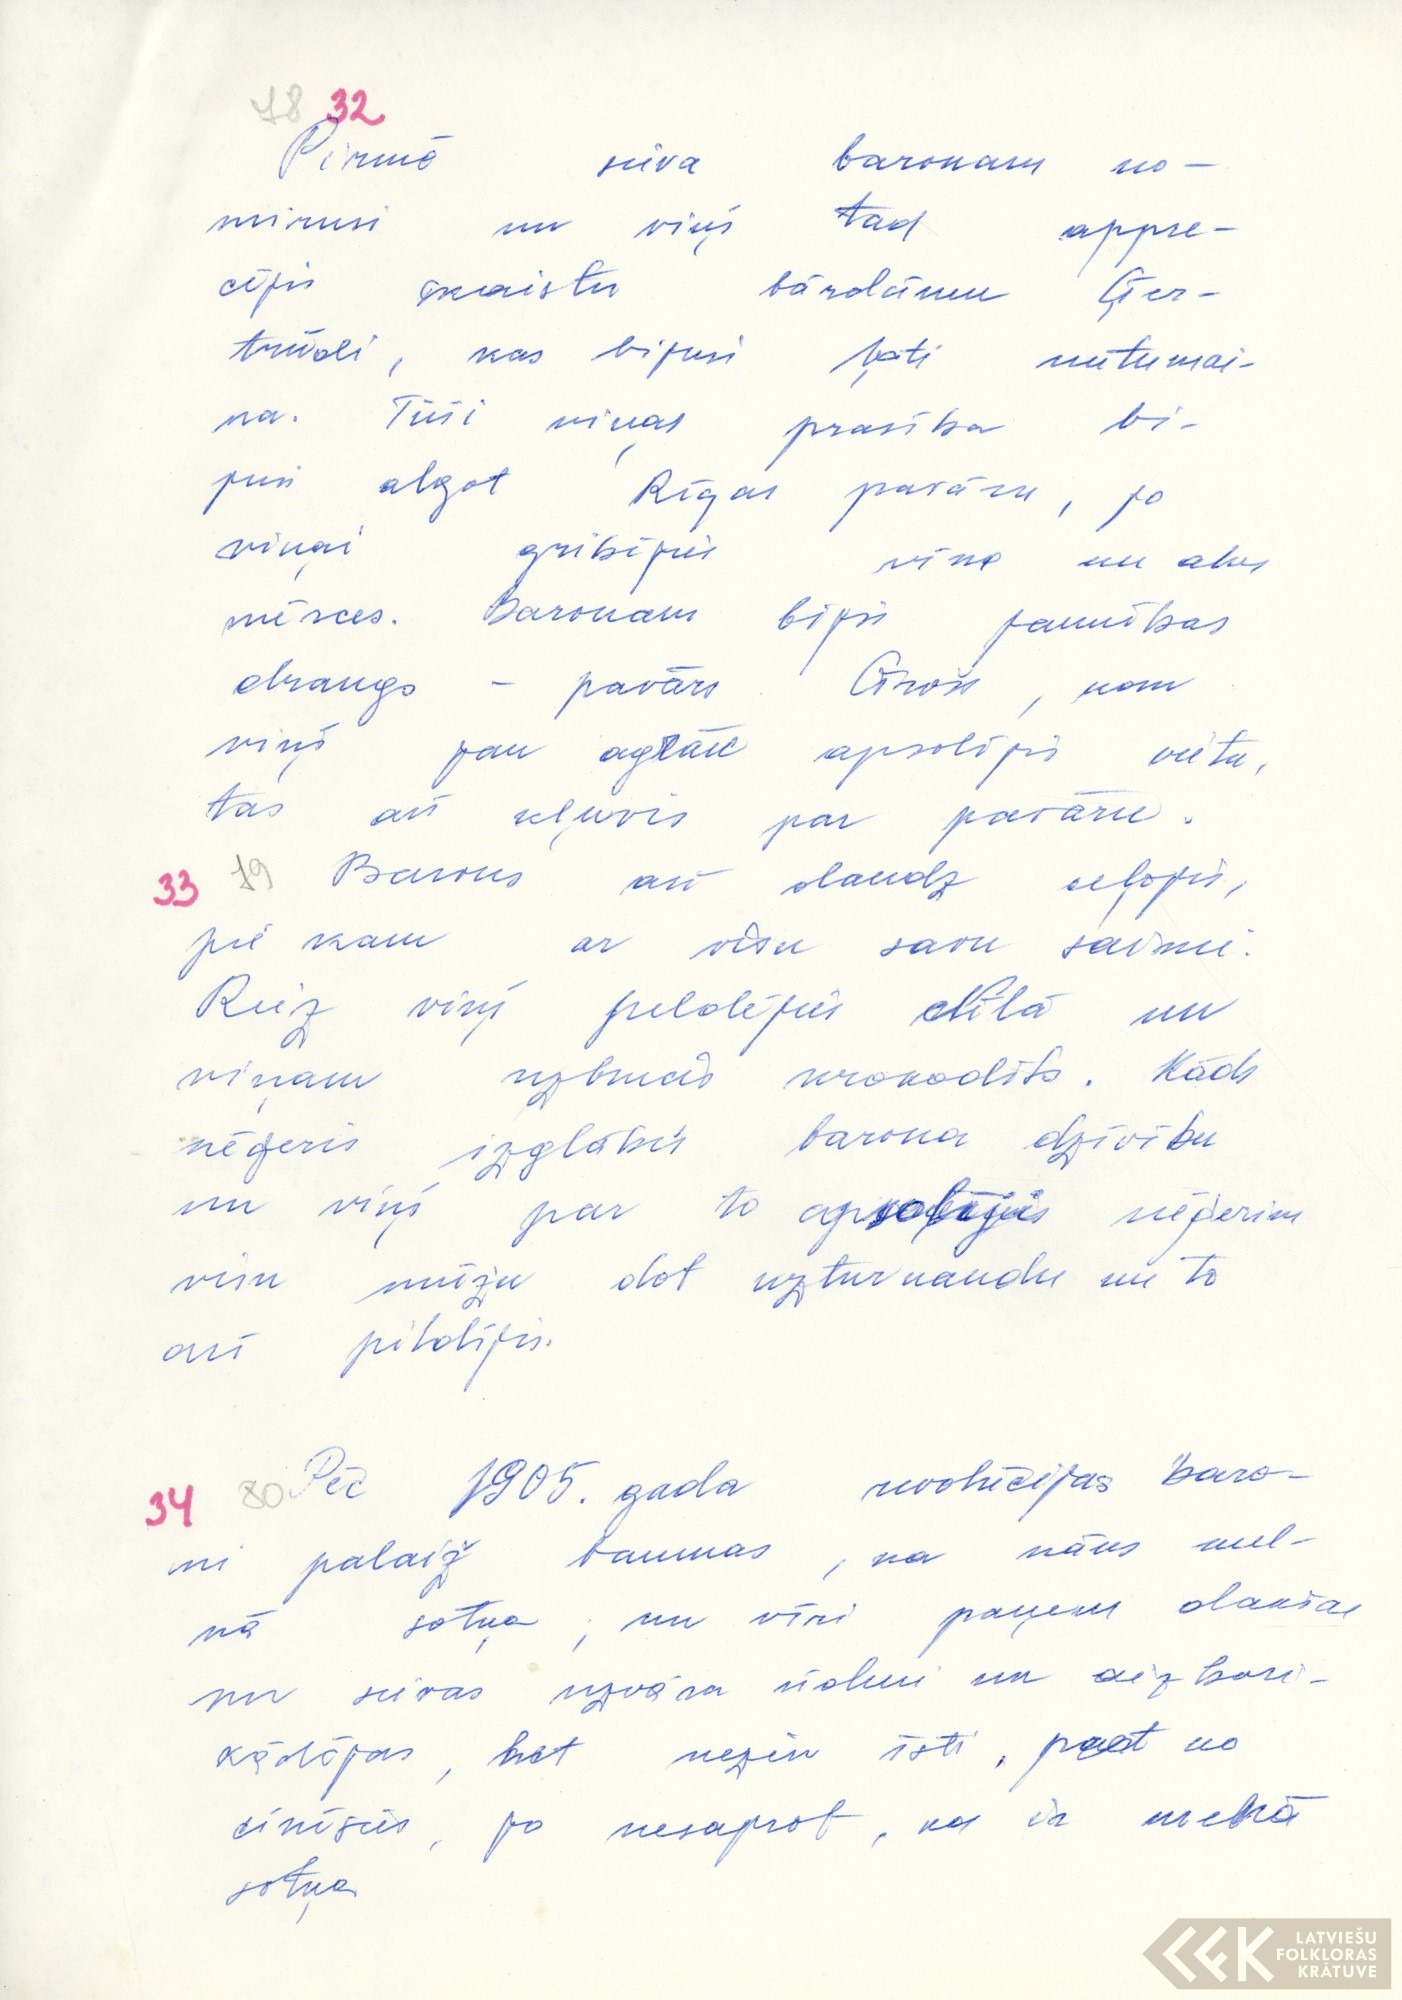 78 32
Pirmā sieva baronam no-
mirusi un viņš tad appre-
cējis skaistu bārdāmu Ģer-
trūdi, kas bijusi ļoti untumai-
na. Tieši viņas prasība bi-
jusi algot Rīgas pavāru, jo
viņai gribējies vīna un alus
mērces. Baronam bijis jaunības
draugs – pavārs Grošs, kam
viņš jau agrāk apsolījis vietu,
tas arī kļuvis par pavāru.
33 79 Barons arī daudz ceļojis,
pie kam ar visu savu saimi.
Reiz viņš peldējies Nīlā un
viņam uzbrucis krokodils. Kāds
nēģeris izglābis barona dzīvību
un viņš par to apsolījis nēģerim
visu mūžu dot uzturnaudu un to
arī pildījis.
34 80 Pēc 1905. gada revolūcijas baro-
ni palaiž baumas, ka nāks mel-
nā sotņa, un vīri paņem dakšas
un sievas uzvāra ūdeni un aizbari-
kādējas, bet nezin īsti, pret ko
cīnīsies, jo nesaprot, kas ir melnā
sotņa
LATVIEŠU
FOLKLORAS
KRĀTUVE